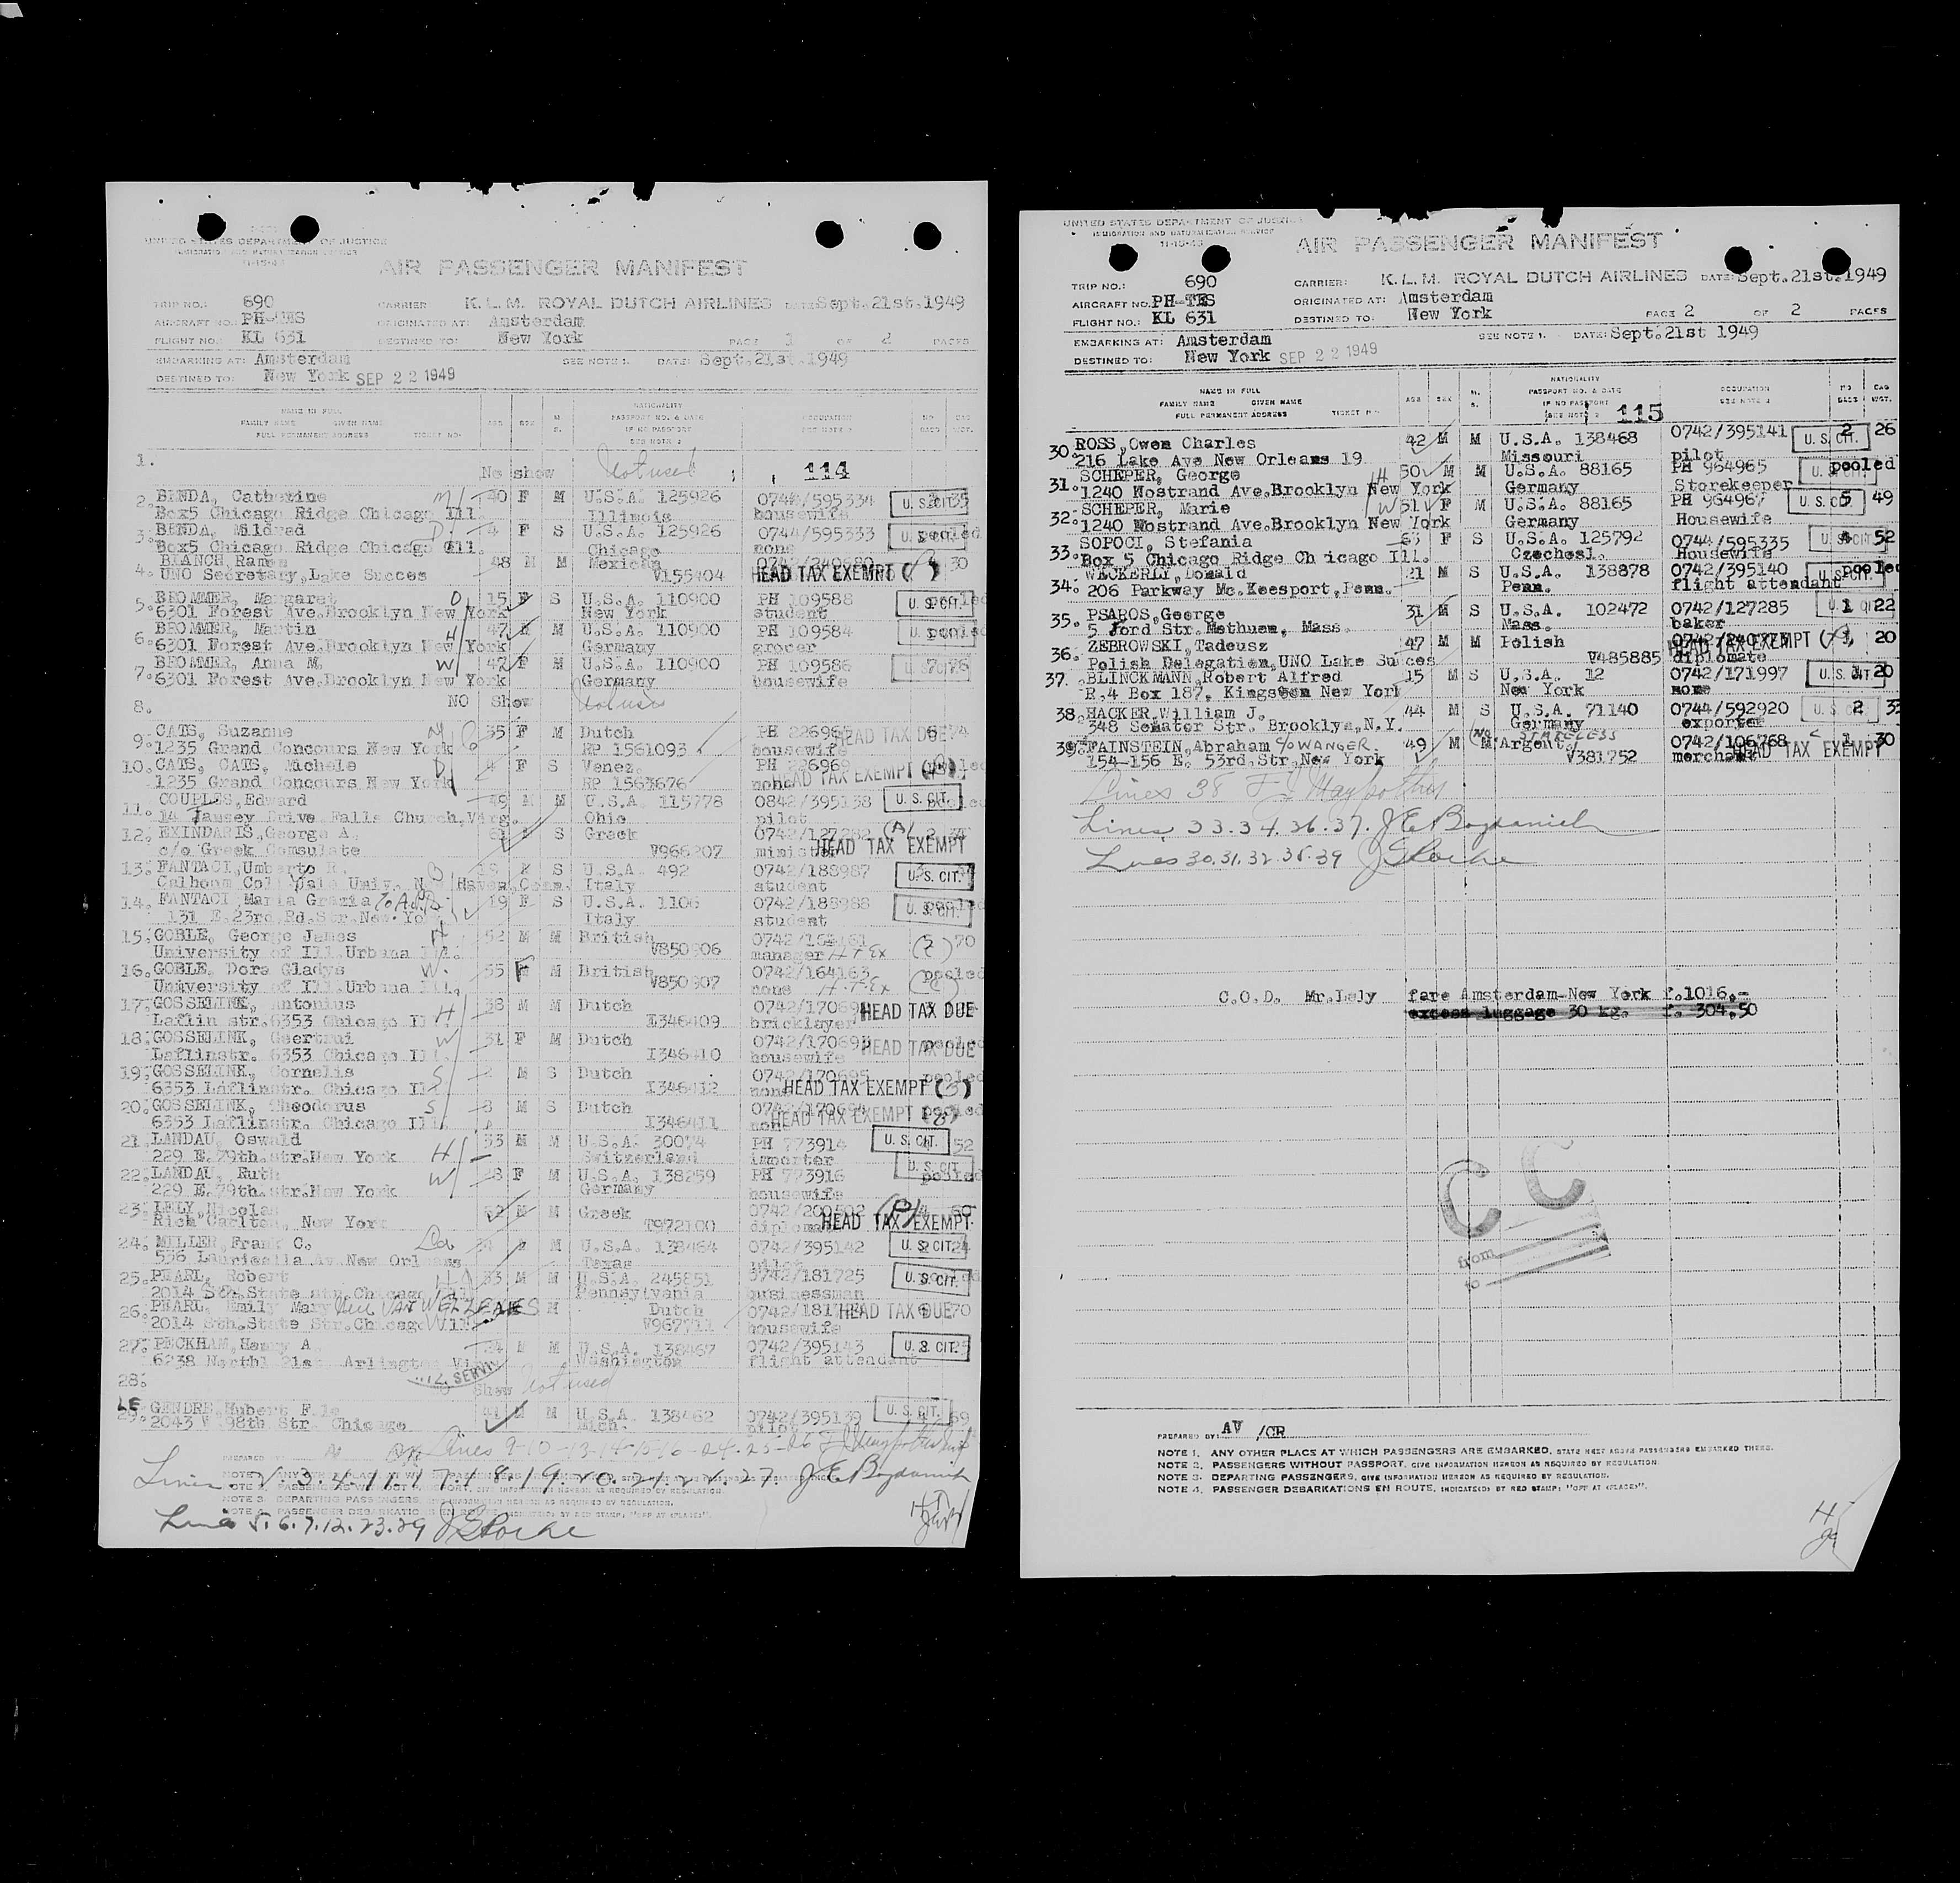 UNITED STATES DEPARTMENT OF JUSTICE
IMMIGRATION AND NATURALIZATION SERVICE
11-15-43
AIR PASSENGER MANIFEST
TRIP NO.: 690 CARRIER K.L.M. ROYAL DUTCH AIRLINES DATE: Sept.21st.1949
AIRCRAFT NO.: PH-TES ORIGINATED AT: Amsterdam
FLIGHT NO.: KL 631 DESTINED TO: New York PAGE 1 OF 2 PAGES
EMBARKING AT: Amsterdam SEE NOTE 1. DATE: Sept.21st.1949
DESTINED TO: New York SEP 22 1949
NAME IN FULL NATIONALITY
FAMILY NAME GIVEN NAME AGE SEX M. S. PASSPORT NO. & DATE OCCUPATION NO. BAGS BAG WGT.
FULL PERMANENT ADDRESS TICKET NO. IF NO PASSPORT SEE NOTE 2
1. No show Not used 114
2. BENDA, Catherine M 40 F M U.S.A. 125926 0744/595334 U.S. CIT. 35
Box5 Chicago Ridge Chicago Ill. Illinois housewife
3. BENDA, Mildred D 4 F S U.S.A. 125926 0744/595333 pooled
Box5 Chicago Ridge Chicago Ill. Chicago none
4. BIANCH, Ramon 48 M M Mexican 30
UNO Secretary, Lake Succes V155404 HEAD TAX EXEMPT
5. BROMMER, Margaret D 15 F S U.S.A. 110900 PH 109588 U.S. CIT. pooled
6301 Forest Ave.Brooklyn New York New York student
6. BROMMER, Martin H 47 M M U.S.A. 110900 PH 109584 pooled
6301 Forest Ave.Brooklyn New York Germany grocer
7. BROMMER, Anna M. W 47 F M U.S.A. 110900 PH 109586 76
6301 Forest Ave.Brooklyn New York Germany housewife
8. NO Show
9. CATS, Suzanne M 35 F M Dutch PH 22696 HEAD TAX DUE
1235 Grand Concours New York RP 1561093 housewife
10. CATS, CATS, Michele D 4 F S Venez. PH 226969
1235 Grand Concours New York none HEAD TAX EXEMPT
11. COUPLES, Edward 49 M M U.S.A. 115778 0842/395138 U.S. CIT. pooled
14 Tansey Drive Falls Church, Virg. Ohio pilot
12. EXINDARIS, George A. 61 S Greek
c/o Greek Consulate V966207 minister HEAD TAX EXEMPT
13. FANTACI, Umberto R. S U.S.A. 492 0742/188987 U.S. CIT.
Calhoun Coll Yale Univ. New Haven, Conn. Italy student
14. FANTACI, Maria Grazia 19 F S U.S.A. 1106 0742/188988 pooled
131 E.23rd,Rd.Str.New Yo Italy student U.S. CIT.
15. GOBLE, George James H 52 M M British 70
University of Ill.Urbana Ill. V850906 manager
16. GOBLE, Dora Gladys W. 55 F M British 0742/164163 pooled
University of Ill.Urbana Ill. V850907 none
17. GOSSELINK, Antonius H 38 M M Dutch HEAD TAX DUE
Laflin str.6353 Chicago Ill. I346409 bricklayer
18. GOSSELINK, Geertrui W 31 F M Dutch HEAD TAX DUE
Laflinstr. 6353 Chicago Ill. I346410 housewife
19. GOSSELINK, Cornelis S M S Dutch 0742/170695 pooled
6353 Laflinstr. Chicago Ill I346412 none HEAD TAX EXEMPT
20. GOSSELINK, Theodorus S 3 M S Dutch pooled
6353 Laflinstr. Chicago Ill. I346411 HEAD TAX EXEMPT
21. LANDAU, Oswald 33 M M U.S.A. 30074 PH 773914 U.S. CIT. 52
229 E.79th.str.New York H Switzerland importer
22. LANDAU, Ruth W 28 F M U.S.A. 138259 PH 773916 U.S. CIT. pooled
229 E.79th.str.New York Germany housewife
23. LELY, Nicolas 52 M M Greek 0742/200502 60
Rich Carlton, New York T972100 HEAD TAX EXEMPT
24. MILLER, Frank C. M U.S.A. 138464 0742/395142 U.S. CIT. 24
Texas pilot
25. PEARL, Robert H 33 M M U.S.A. 245851 0742/181725 U.S. CIT.
2014 Sth.State str.Chicago Ill Pennsylvania businessman
26. PEARL, Emily Mary M Dutch HEAD TAX DUE 70
2014 Sth.State Str.Chicago Ill. V967711 housewife
27. PECKHAM, Henry A. 24 M M U.S.A. 138467 0742/395143 U.S. CIT. 25
Washington flight attendant
28. Show Not used
LE
29. GENDRE, Hubert F.le 41 M M U.S.A. 138462 0742/395139 U.S. CIT. 69
98th Str. Chicago Mich. pilot
Lines 5.6.7.12.23.29
UNITED STATES DEPARTMENT OF JUSTICE
IMMIGRATION AND NATURALIZATION SERVICE
11-15-43
AIR PASSENGER MANIFEST
TRIP NO.: 690 CARRIER: K.L.M. ROYAL DUTCH AIRLINES DATE: Sept.21st.1949
AIRCRAFT NO. PH-TES ORIGINATED AT: Amsterdam
FLIGHT NO.: KL 631 DESTINED TO: New York PAGE 2 OF 2 PAGES
EMBARKING AT: Amsterdam SEE NOTE 1. DATE: Sept.21st 1949
DESTINED TO: New York SEP 22 1949
NAME IN FULL NATIONALITY
FAMILY NAME GIVEN NAME AGE SEX M. S. PASSPORT NO. & DATE OCCUPATION NO. BAGS BAG WGT.
FULL PERMANENT ADDRESS TICKET NO. IF NO PASSPORT SEE NOTE 2
SEE NOTE 2 115
30. ROSS, Owen Charles 42 M M U.S.A. 138468 0742/395141 U.S. CIT. 2 26
216 Lake Ave New Orleans 19 Missouri pilot
31. SCHEPER, George H 50 M M U.S.A. 88165 PH 964965 pooled
1240 Nostrand Ave.Brooklyn New York Germany Storekeeper
32. SCHEPER, Marie W 51 F M U.S.A. 88165 PH 964967 5 49
1240 Nostrand Ave.Brooklyn New York Germany Housewife
33. SOPOCI, Stefania 63 F S U.S.A. 125792 0744/595335 4 52
Box 5 Chicago Ridge Ch icago Ill. Czechosl. Housewife
34. WECKERLY, Donald 21 M S U.S.A. 138878 0742/395140 pooled
206 Parkway Mc.Keesport, Penn. Penn. flight attendant
35. PSAROS, George 31 M S U.S.A. 102472 0742/127285 1 22
5 Ford Str. Methuen, Mass. Mass. baker
36. ZEBROWSKI, Tadeusz 47 M M Polish HEAD TAX EXEMPT 20
Polish Delegation, UNO Lake Succes V485885 diplomate
37. BLINCKMANN, Robert Alfred 15 M S U.S.A. 12 0742/171997 U.S. CIT. 20
R,4 Box 187, Kingston New York New York none
38. HACKER, William J. 44 M S U.S.A. 71140 0744/592920 2 33
348 Senator Str. Brooklyn, N.Y. Germany exporter
STATELESS
39. FAINSTEIN, Abraham c/o WANGER 49 M M Argent. 0742/106768 1 30
154-156 E. 53rd, Str, New York V381752 merchant HEAD TAX EXEMPT
Lines 33.34.36.37. J E Bogdanich
Lines 30.31.32.35.39
C.O.D. Mr.Lely fare Amsterdam-New York f.1016,-
excess luggage 30 kg. f. 304.50
C C
from
to
PREPARED BY: AV /CR
NOTE 1. ANY OTHER PLACE AT WHICH PASSENGERS ARE EMBARKED, STATE NEXT ABOVE PASSENGERS EMBARKED THERE.
NOTE 2. PASSENGERS WITHOUT PASSPORT, GIVE INFORMATION HEREON AS REQUIRED BY REGULATION.
NOTE 3. DEPARTING PASSENGERS, GIVE INFORMATION HEREON AS REQUIRED BY REGULATION.
NOTE 4. PASSENGER DEBARKATIONS EN ROUTE, INDICATE(D) BY RED STAMP: "OFF AT (PLACE)".